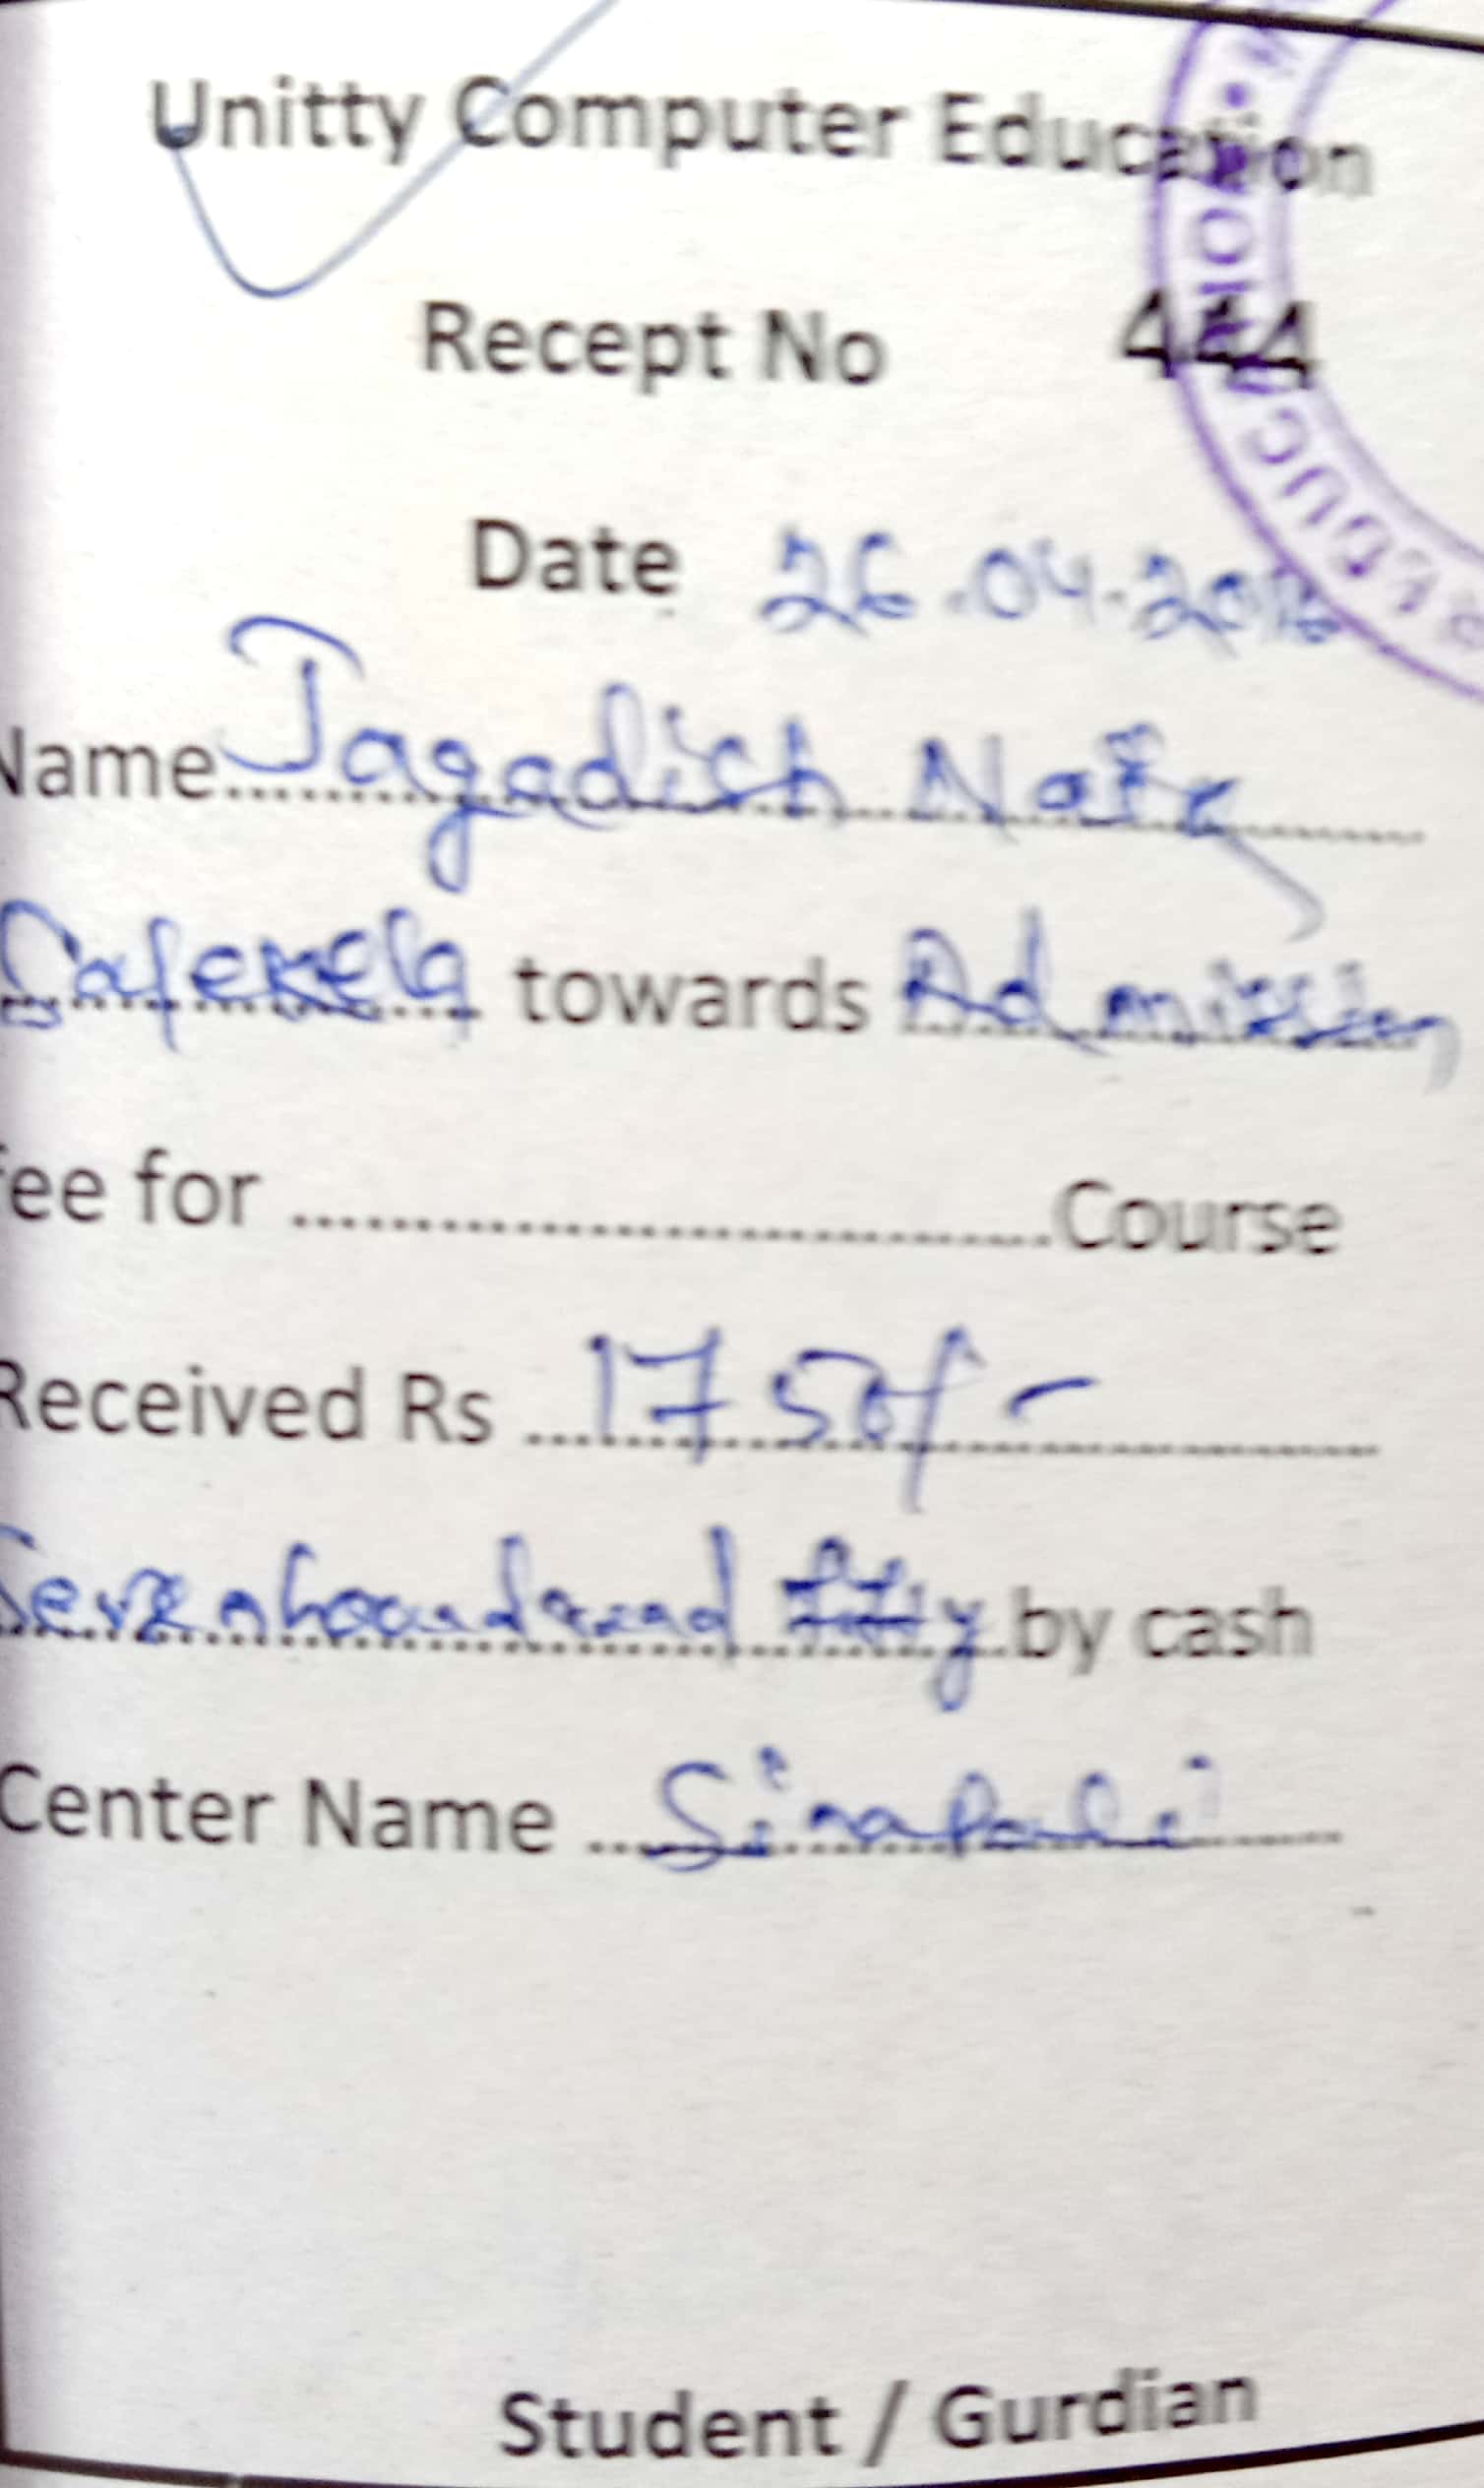 Unitty Computer Education
Recept No 444
Date 26.04.201
Name Jagadish Naik
towards Admission
fee for Course
Received Rs 1750/-
Seven houndrad fifty by cash
Center Name Sinapali
Student / Gurdian